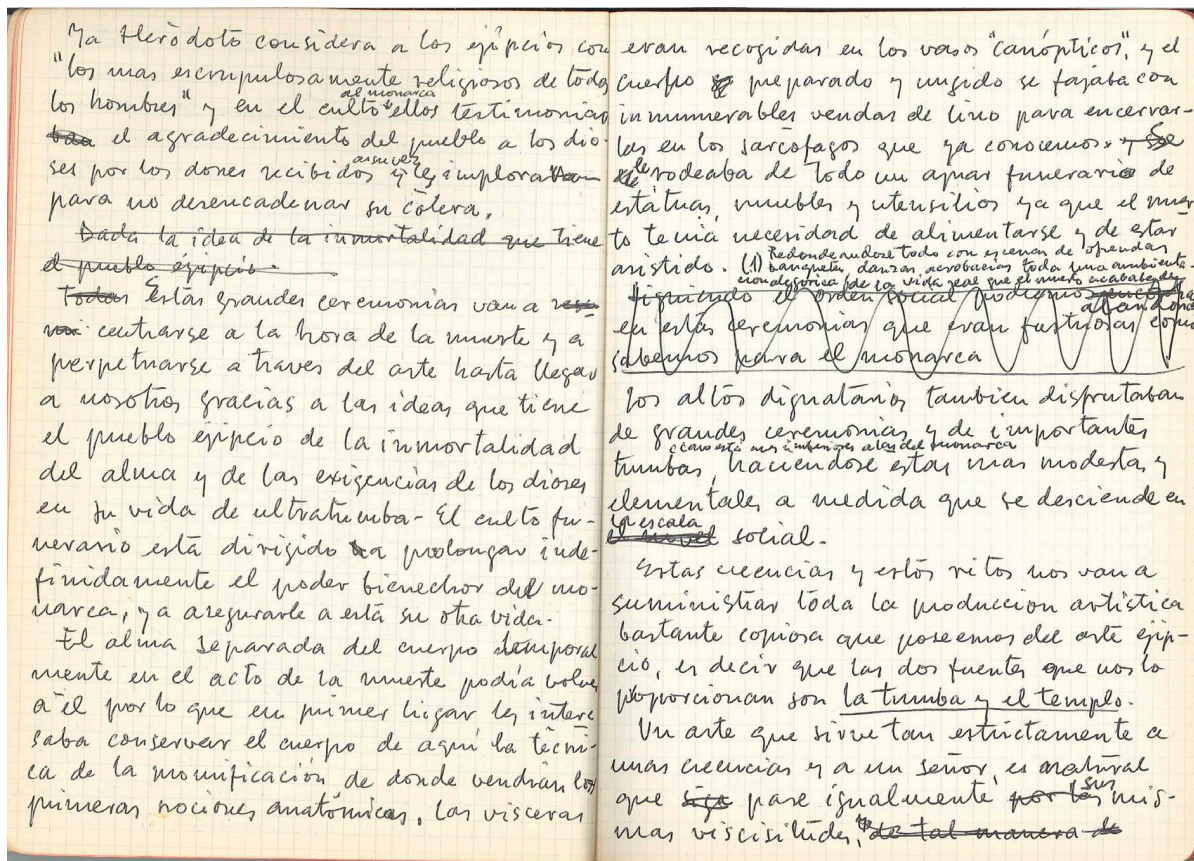 Ya Heròdoto considera a los ejipcios com
"los mas escrupulosamente religiosos de todos
al monarca
los hombres" y en el culto ellos testimonias
el agradecimiento del pueblo a los dio-
a su vez
ses por los dones recibidos y les implora
para no desencadenar su cólera.
Dada la idea de la inmortalidad que tiene
el pueblo ejipcio.
Todas Estas grandes ceremonias van a
centrarse a la hora de la muerte y a
perpetuarse a traves del arte hasta llegar
a nosotros gracias a las ideas que tiene
el pueblo ejipcio de la inmortalidad
del alma y de las exigencias de los dioses
en su vida de ultratumba- El culto fu-
nerario está dirigido a prolongar inde-
finidamente el poder bienechor del mo-
narca, y a asegurarle a està su otra vida-
El alma separada del cuerpo temporal
mente en el acto de la muerte podía volver
a èl por lo que en primer lugar les intere
saba conservar el cuerpo de aquí la tècni-
ca de la momificación de donde vendrían las
primeras nociones anatómicas, las visceras
eran recogidas en los vasos "canópticos", y el
cuerpo preparado y ungido se fajaba con
innumerables vendas de lino para encerrar-
las en los sarcófagos que ya conocemos. y Se
le rodeaba de todo un ajuar funerario de
estàtuas, muebles y utensilios ya que el muer
to tenia necesidad de alimentarse y de estar
asistido. (1) Redondeandose todo con escenas de ofrendas
banquetes, danzas, acrobacias toda una ambienta-
cion alegórica de la vida real que el muerto acababa de
abandonar
siguiendo el orden social podemos
en estas ceremonias que eran fastuosas como
sabemos para el monarca
Los altos dignatarios tambien disfrutaban
de grandes ceremonias y de importantes
claro está mas inferiores a las del monarca
tumbas, haciendose estas mas modestas y
elementales a medida que se desciende en
la escala
el nivel social.
Estas creencias y estòs ritos nos van a
suministrar toda la produccion artìstica
bastante copiosa que poseemos del arte ejip-
cio, es decir que las dos fuentes que nos lo
proporcionan son la tumba y el templo.
Un arte que sirve tan estrictamente a
unas creencias y a un señor, es natural
que siga pase igualmente por las sus mis-
mas viscisitudes, de tal manera de